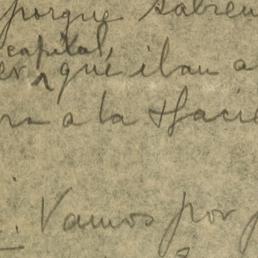 porque sabien
capital,
er que iban a
ra a la Hacie
i. Vamos por p